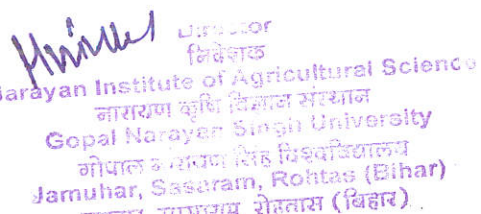 Director
निदेशक
Narayan Institute of Agricultural Science
नारायण कृषि विज्ञान संस्थान
Gopal Narayan Singh University
गोपाल नारायण सिंह विश्वविद्यालय
Jamuhar, Sasaram, Rohtas (Bihar)
सासाराम, रोहतास (बिहार)